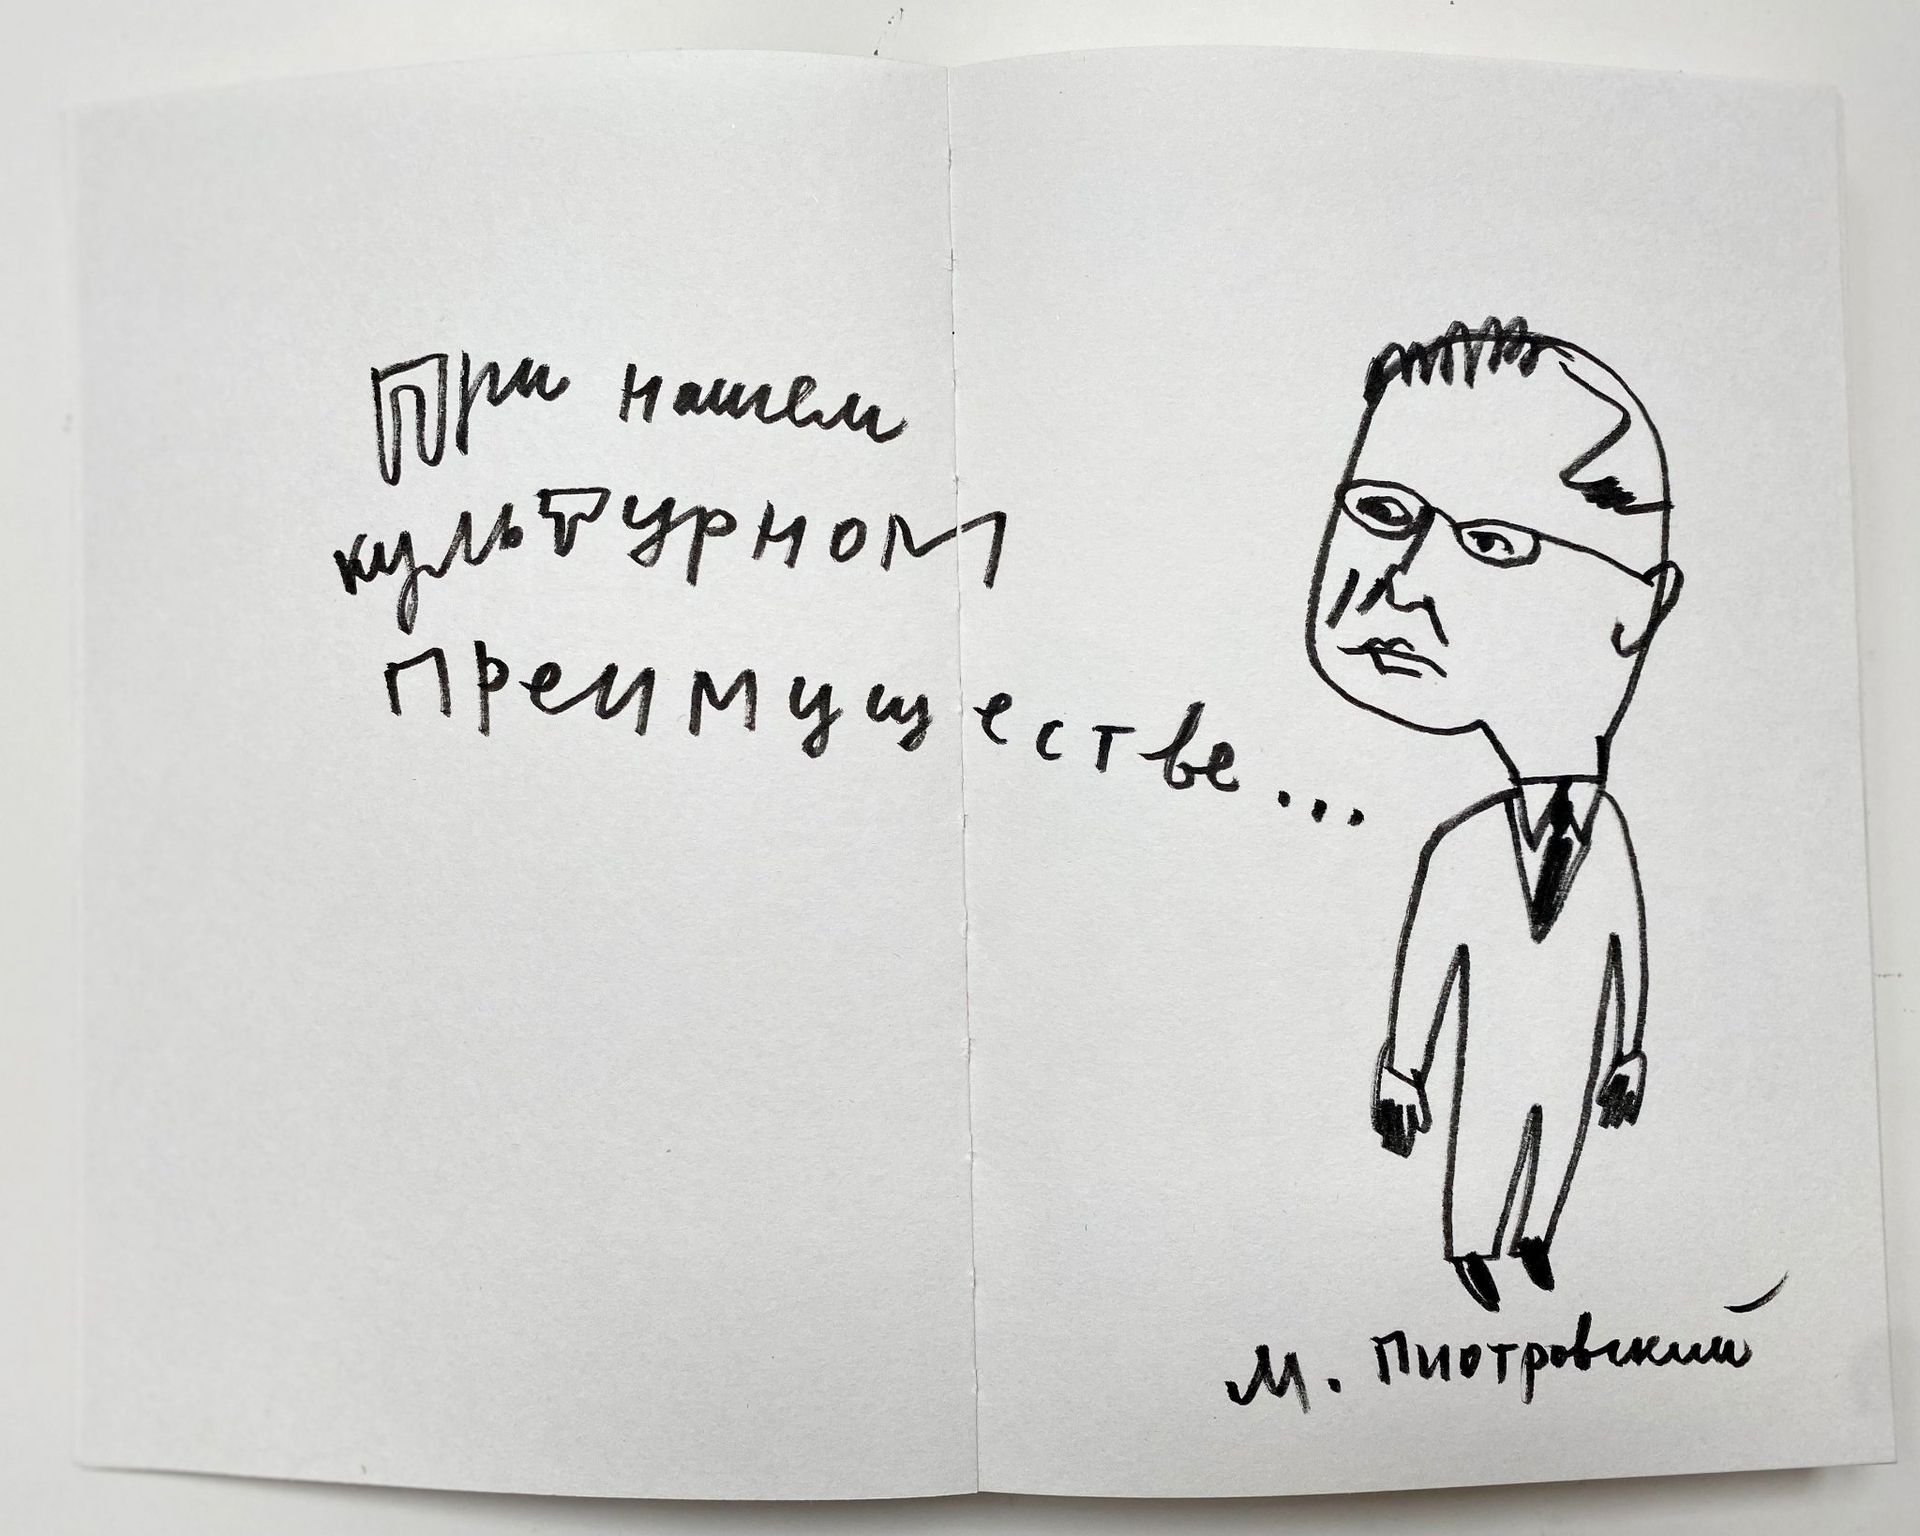 При нашем
культурном
преимуществе...
М. Пиотровский